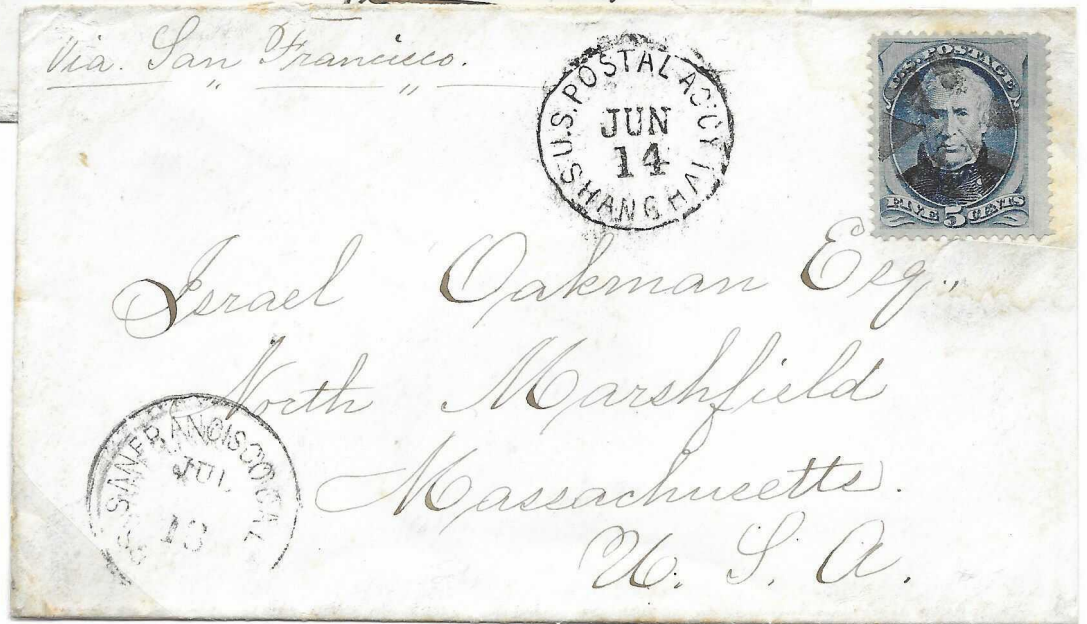 Via. San Francisco.
U.S. POSTAL AGCY
JUN
14
SHANGHAI
U.S. POSTAGE
FIVE 5 CENTS
Israel Oakman Esq.,
North Marshfield
Massachusetts.
U. S. A.
SAN FRANCISCO CAL
JUL